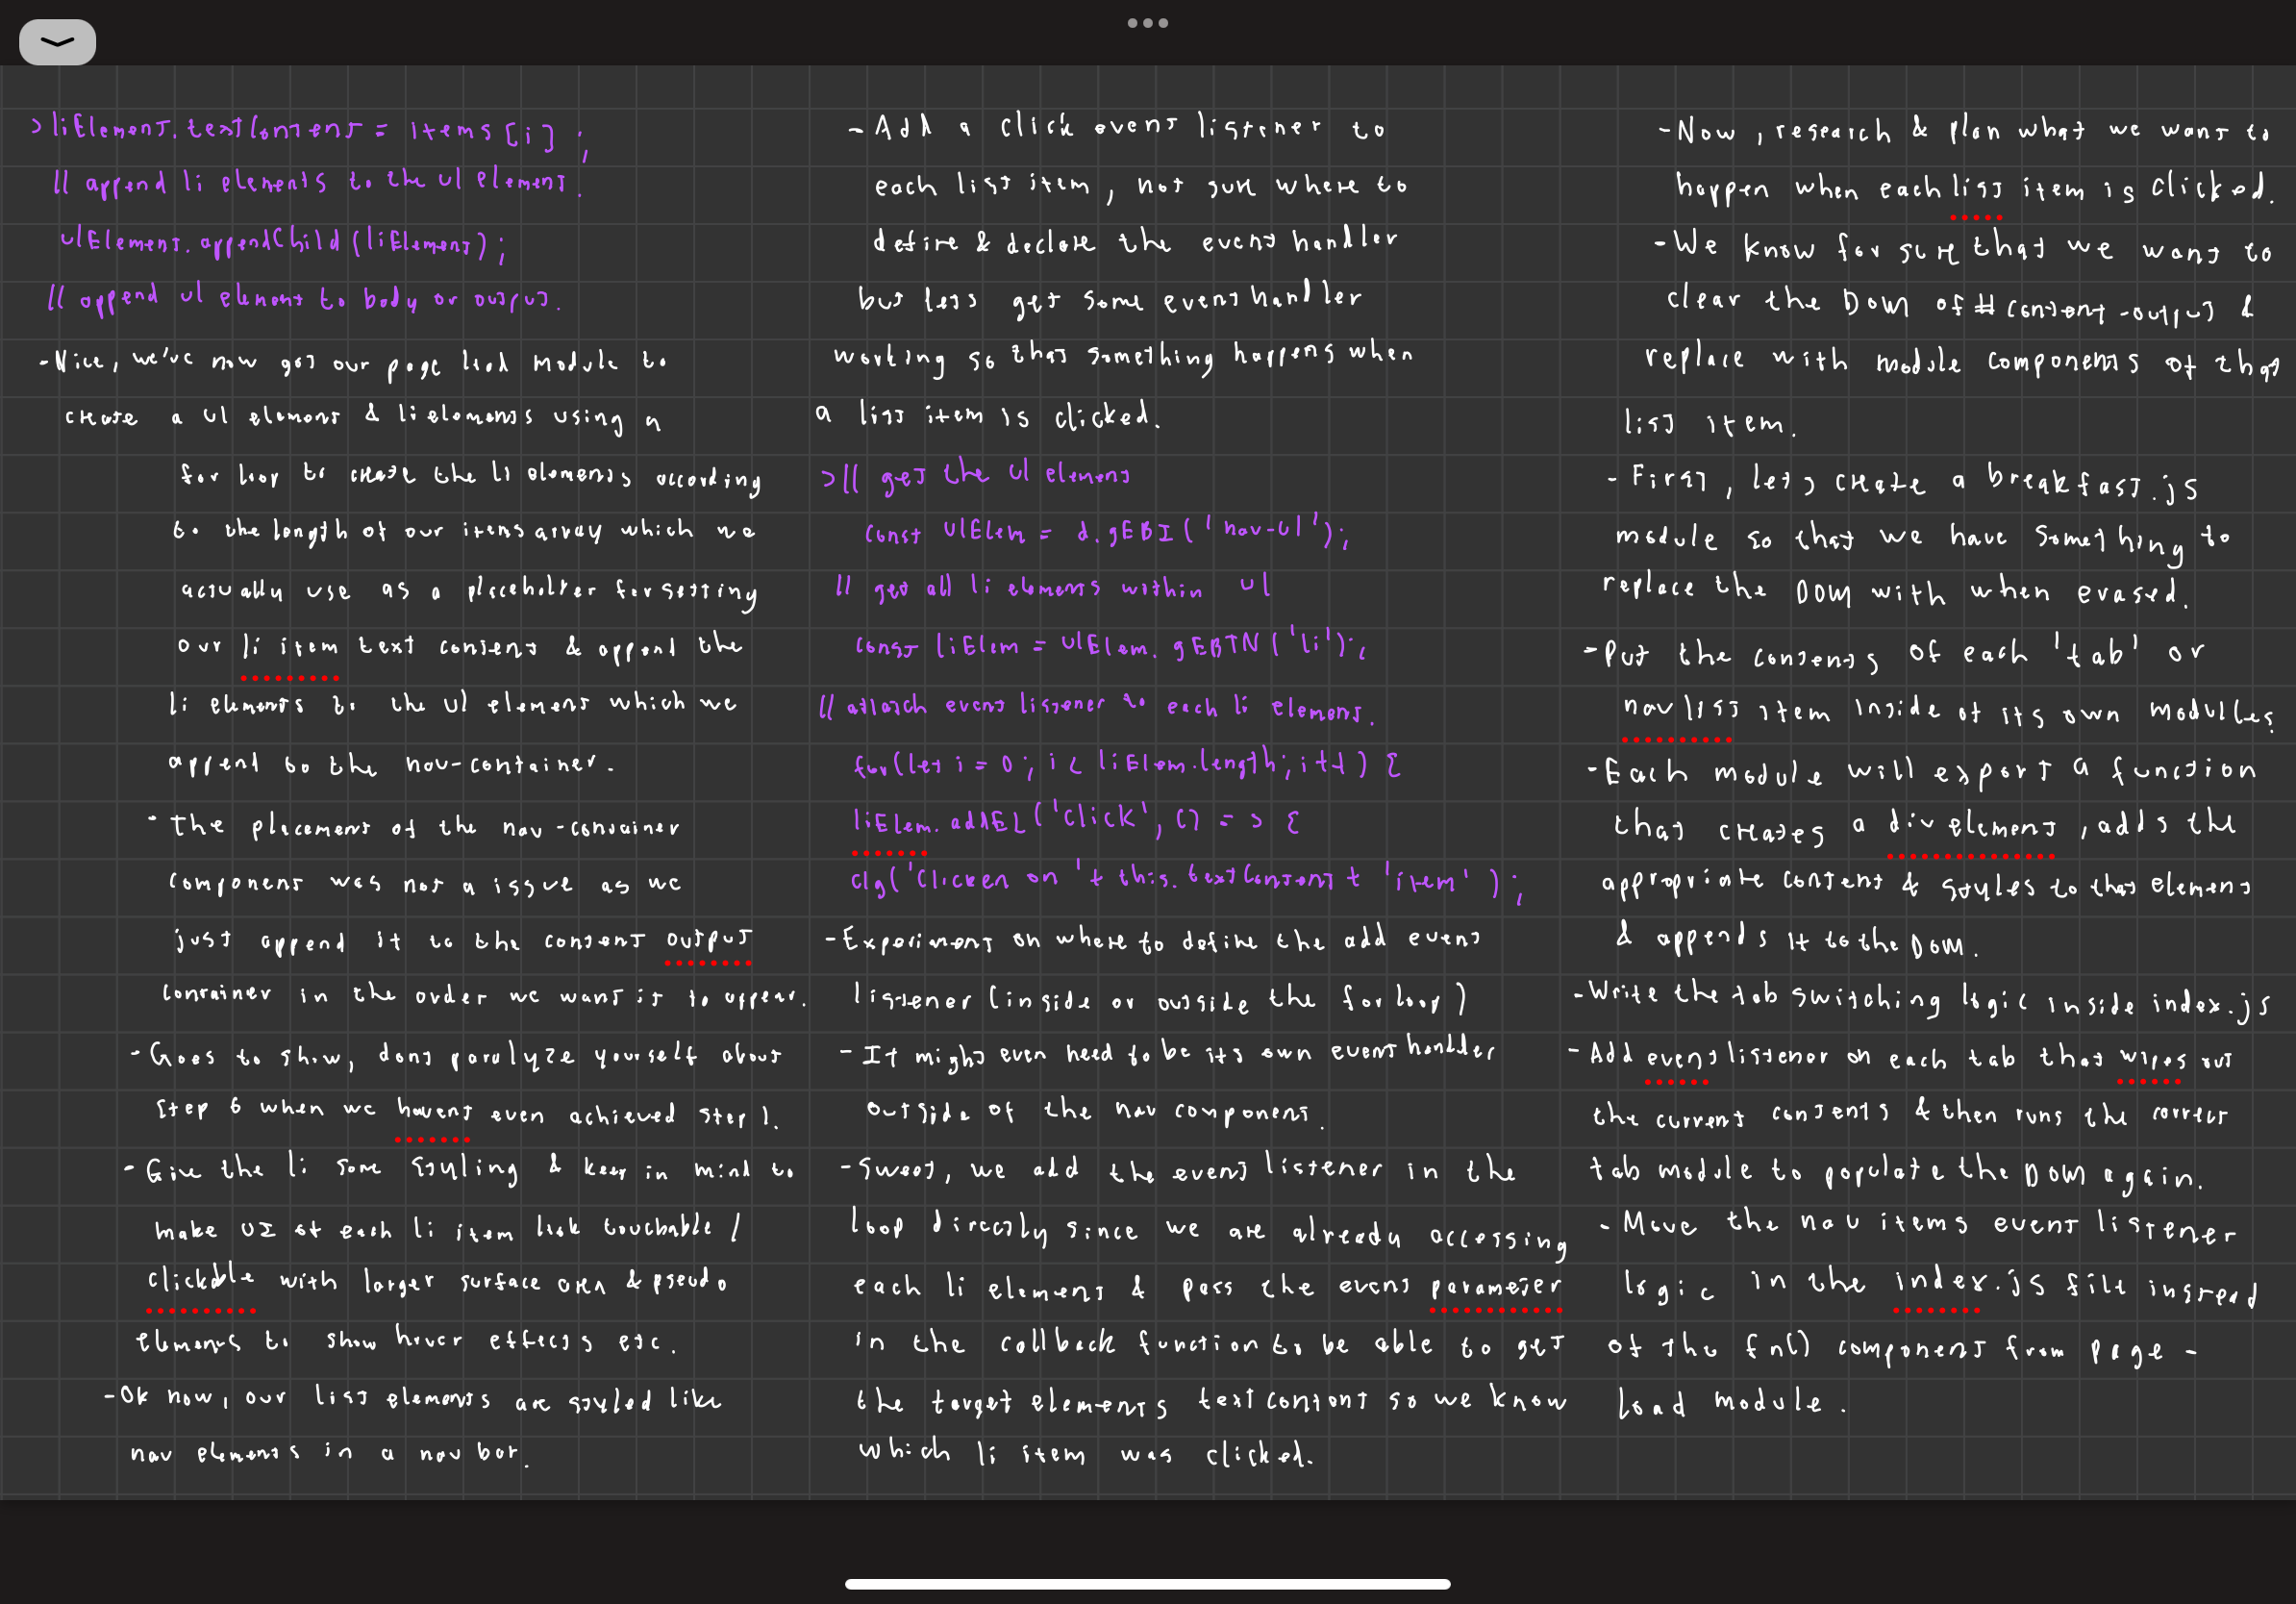 > liElement.textContent = items[i];
// append li elements to the ul element.
ulElement.appendChild(liElement);
// append ul element to body or output.
- Nice, we've now got our page load module to
create a ul element & li elements using a
for loop to create the li elements according
to the length of our items array which we
actually use as a placeholder for setting
our li item text content & append the
li elements to the ul element which we
append to the nav-container.
- The placement of the nav-container
component was not a issue as we
just append it to the content output
container in the order we want it to appear.
- Goes to show, dont paralyze yourself about
step 6 when we havent even achieved step 1.
- Give the li some styling & keep in mind to
make UI of each li item look touchable /
clickable with larger surface area & pseudo
elements to show hover effects etc.
- Ok now, our list elements are styled like
nav elements in a nav bar.
- Add a click event listener to
each list item, not sure where to
define & declare the event handler
but lets get some event handler
working so that something happens when
a list item is clicked.
> // get the ul element
const ulElem = d.gEBI('nav-ul');
// get all li elements within ul
const liElem = ulElem.gEBTN('li');
// attatch event listener to each li element.
for(let i = 0; i < liElem.length; i++) {
liElem.addEL('click', () => {
clg('Clicken on ' + this.textContent + 'item');
- Experiment on where to define the add event
listener (inside or outside the for loop)
- It might even need to be its own event handler
outside of the nav component.
- Sweet, we add the event listener in the
loop directly since we are already accessing
each li element & pass the event parameter
in the callback function to be able to get
the target elements text content so we know
which li item was clicked.
- Now, research & plan what we want to
happen when each list item is clicked.
- We know for sure that we want to
clear the DOM of #content-output &
replace with module components of that
list item.
- First, lets create a breakfast.js
module so that we have something to
replace the DOM with when erased.
- Put the contents of each 'tab' or
nav list item inside of its own modulles.
- Each module will export a function
that creates a div element, adds the
appropriate content & styles to that element
& appends it to the DOM.
- Write the tab switching logic inside index.js
- Add event listener on each tab that wipes out
the current contents & then runs the correct
tab module to populate the DOM again.
- Move the nav items event listener
logic in the index.js file instead
of the fn() component from page-
load module.